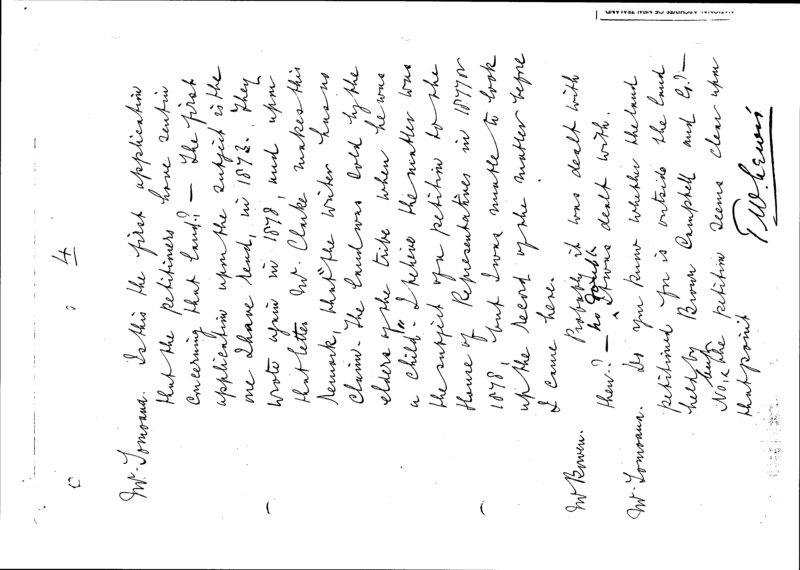 4
Mr. Tomoana. Is this the first application
that the petitioners have sent in
concerning that land? — The first
application upon the subject is the
one I have read, in 1873. They
wrote again in 1878, and upon
that letter Mr. Clarke makes this
remark, "that the writer has no
claim. The land was sold by the
elders of the tribe when he was
a child." I believe the matter was
the subject of a petition to the
House of Representatives in 1877 or
1878, but I was unable to look
up the record of the matter before
I came here.
Mr Bowen. Probably it was dealt with
then? — no doubt it was dealt with.
Mr. Tomoana. Do you know whether the land
petitioned for is outside the land
held by Brown Campbell and Co? —
No, but the petition seems clear upon
that point
T. W. Lewis
NATIONAL ARCHIVES OF NEW ZEALAND